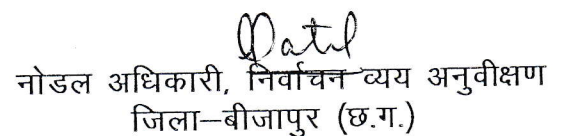 नोडल अधिकारी, निर्वाचन व्यय अनुवीक्षण
जिला–बीजापुर (छ.ग.)